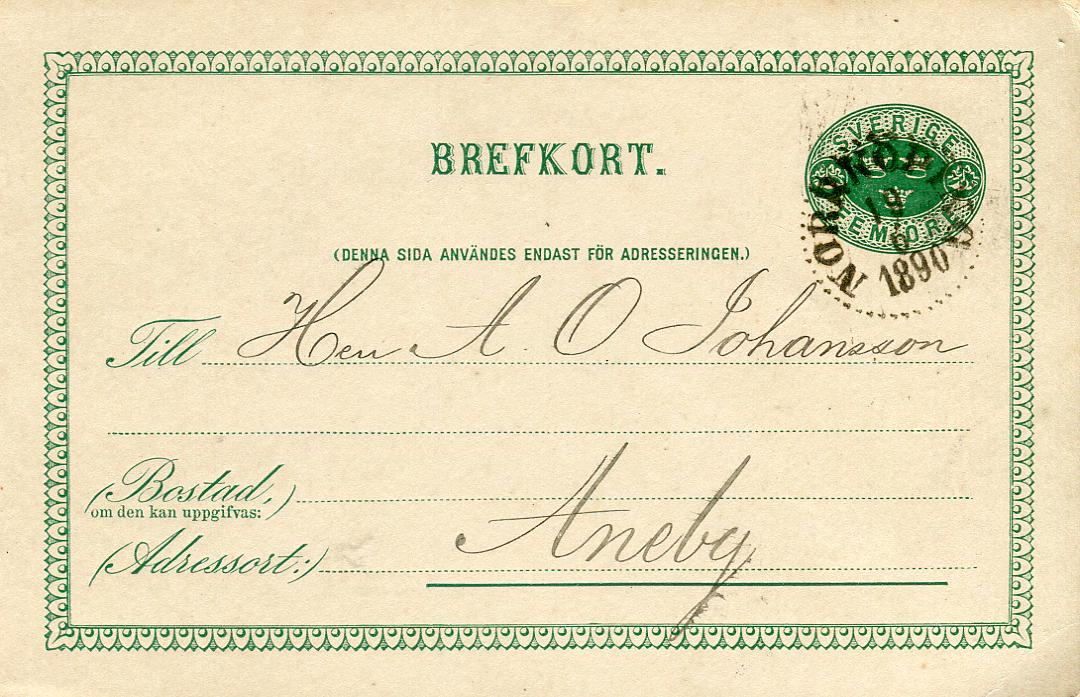 BREFKORT.
SVERIGE
FEM ÖRE
19
6
1890
(DENNA SIDA ANVÄNDES ENDAST FÖR ADRESSERINGEN.)
Till Herr A. O Johansson
(Bostad,)
om den kan uppgifvas:
Aneby
(Adressort:)